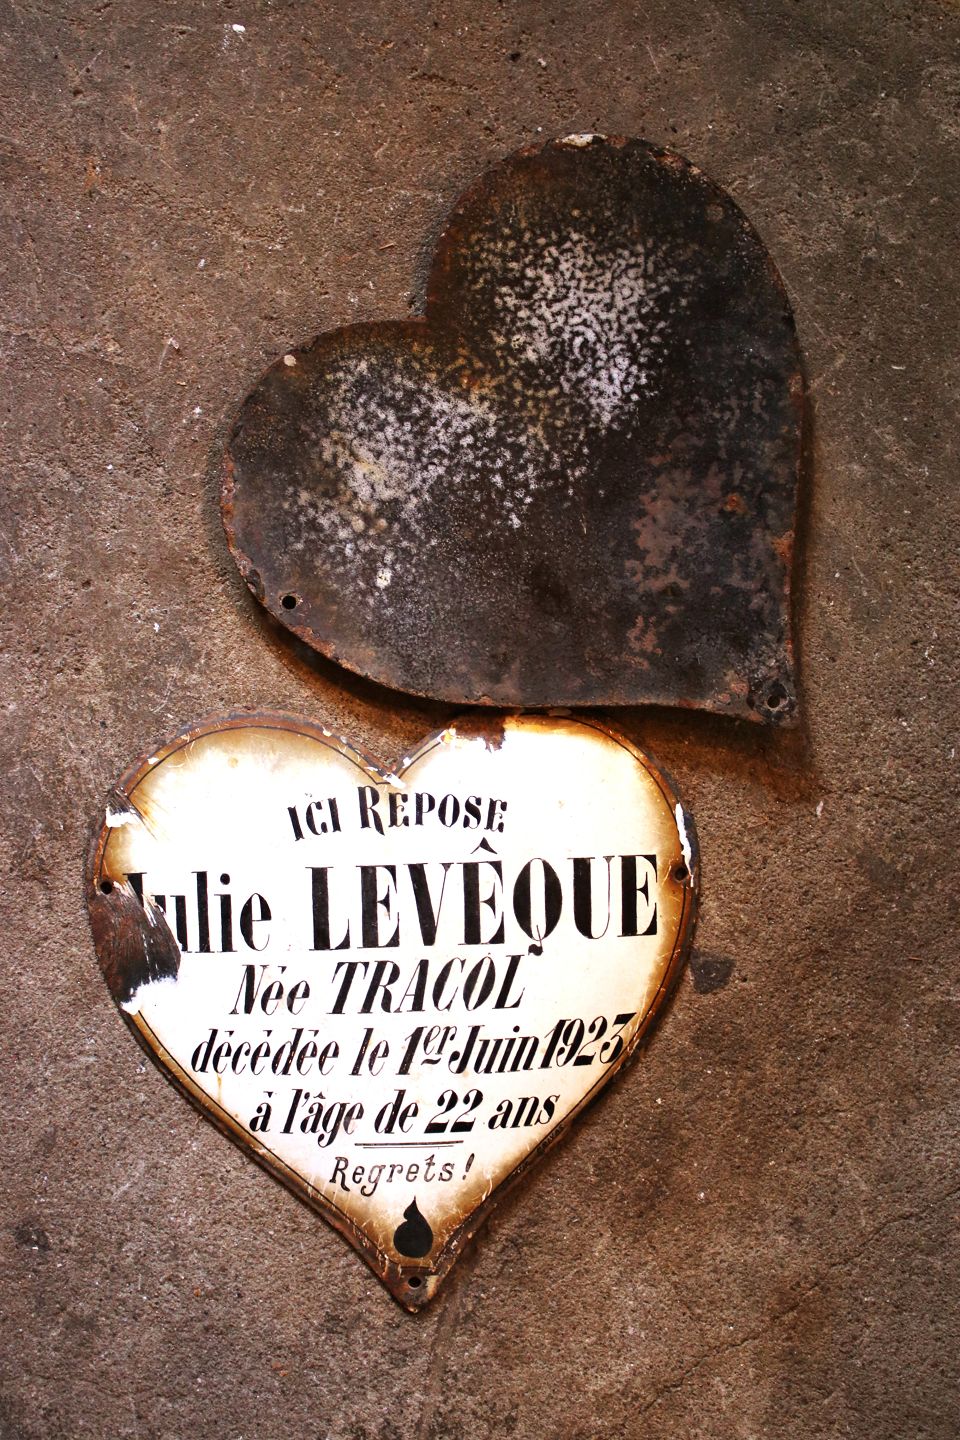 ICI REPOSE
Julie LEVÊQUE
Née TRACOL
décédée le 1er Juin 1923
à l'âge de 22 ans
Regrets!